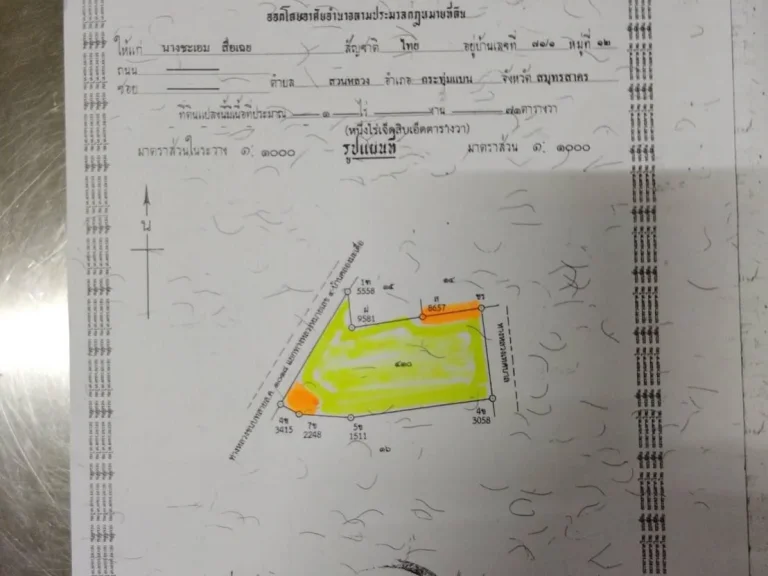 ออกโดยอาศัยอำนาจตามประมวลกฎหมายที่ดิน
ให้แก่ นางชะเอม สือเฉย สัญชาติ ไทย อยู่บ้านเลขที่ ๗๑/๑ หมู่ที่ ๑๒
ถนน
ซอย ตำบล สวนหลวง อำเภอ กระทุ่มแบน จังหวัด สมุทรสาคร
ที่ดินแปลงนี้มีเนื้อที่ประมาณ ๑ ไร่ งาน ๗๑ ตารางวา
(หนึ่งไร่เจ็ดสิบเอ็ดตารางวา)
มาตราส่วนในระวาง ๑: ๑๐๐๐ รูปแผนที่ มาตราส่วน ๑: ๑๐๐๐
น
ทางหลวงเทศบาล
๑๕
๑๔
5558
ม
9581
8657
ชร
๔๑๐
4ข
3415
7ข
2248
5ข
1511
4ข
3058
๑๖